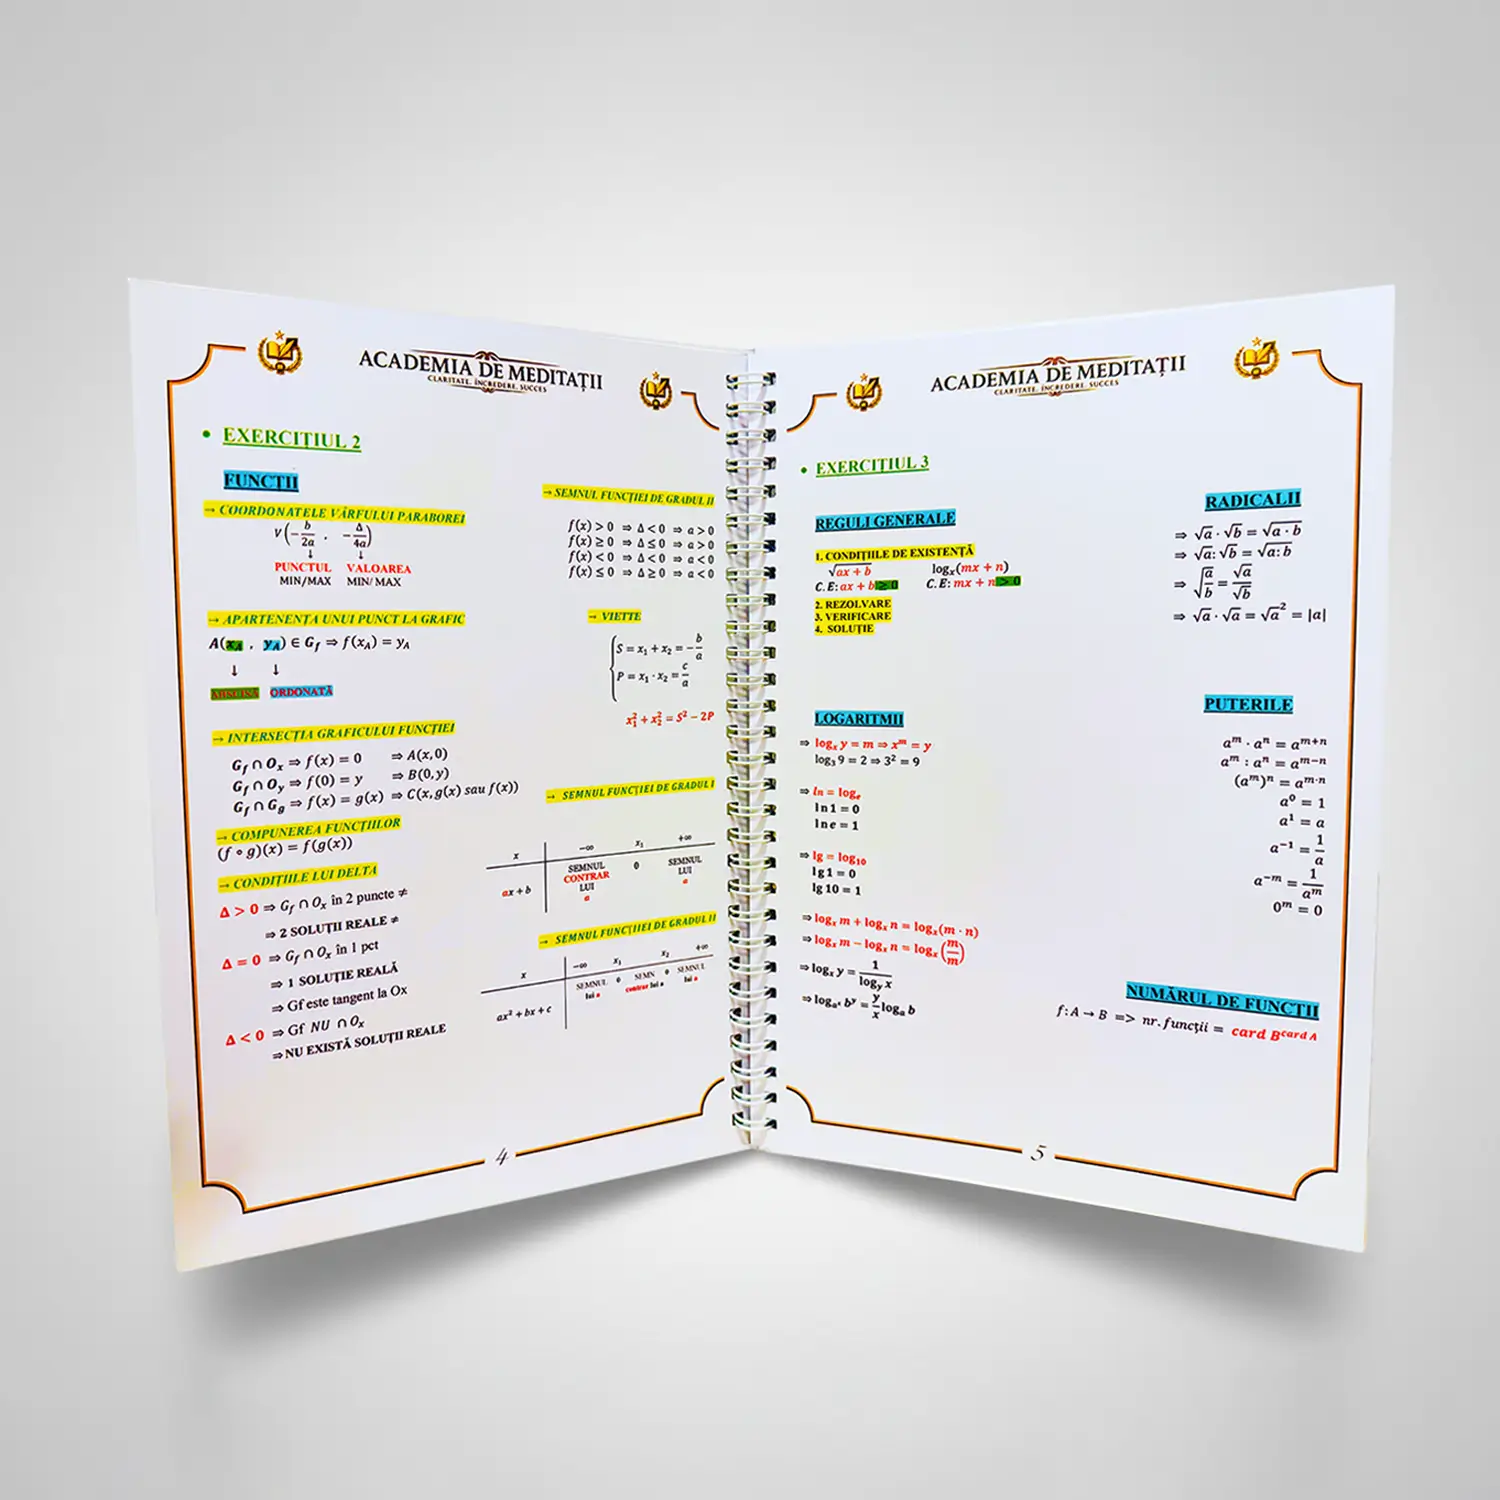 ACADEMIA DE MEDITAȚII
CLARITATE. ÎNCREDERE. SUCCES
• EXERCIȚIUL 2
FUNCȚII
→ COORDONATELE VÂRFULUI PARABOREI
V(-b/2a , -Δ/4a)
↓ ↓
PUNCTUL VALOAREA
MIN/MAX MIN/ MAX
→ APARTENENȚA UNUI PUNCT LA GRAFIC
A(x_A , y_A) ∈ G_f ⇒ f(x_A) = y_A
↓ ↓
ORDONATĂ
→ INTERSECȚIA GRAFICULUI FUNCȚIEI
G_f ∩ O_x ⇒ f(x) = 0 ⇒ A(x, 0)
G_f ∩ O_y ⇒ f(0) = y ⇒ B(0, y)
G_f ∩ G_g ⇒ f(x) = g(x) ⇒ C(x, g(x) sau f(x))
→ COMPUNEREA FUNCȚIILOR
(f ∘ g)(x) = f(g(x))
→ CONDIȚIILE LUI DELTA
Δ > 0 ⇒ G_f ∩ O_x în 2 puncte ≠
⇒ 2 SOLUȚII REALE ≠
Δ = 0 ⇒ G_f ∩ O_x în 1 pct
⇒ 1 SOLUȚIE REALĂ
⇒ Gf este tangent la Ox
Δ < 0 ⇒ Gf NU ∩ O_x
⇒ NU EXISTĂ SOLUȚII REALE
→ SEMNUL FUNCȚIEI DE GRADUL II
f(x) > 0 ⇒ Δ < 0 ⇒ a > 0
f(x) ≥ 0 ⇒ Δ ≤ 0 ⇒ a > 0
f(x) < 0 ⇒ Δ < 0 ⇒ a < 0
f(x) ≤ 0 ⇒ Δ ≥ 0 ⇒ a < 0
→ VIETTE
S = x₁ + x₂ = -b/a
P = x₁ · x₂ = c/a
x₁² + x₂² = S² − 2P
→ SEMNUL FUNCȚIEI DE GRADUL I
x −∞ x₁ +∞
ax + b SEMNUL CONTRAR LUI a 0 SEMNUL LUI a
→ SEMNUL FUNCȚIEI DE GRADUL II
x −∞ x₁ x₂ +∞
ax² + bx + c SEMNUL lui a 0 SEMN contrar lui a 0 SEMNUL lui a
4
ACADEMIA DE MEDITAȚII
CLARITATE. ÎNCREDERE. SUCCES
• EXERCITIUL 3
REGULI GENERALE
1. CONDIȚIILE DE EXISTENȚĂ
√(ax + b) log_x(mx + n)
C.E: ax + b ≥ 0 C.E: mx + n > 0
2. REZOLVARE
3. VERIFICARE
4. SOLUȚIE
LOGARITMII
⇒ log_x y = m ⇒ x^m = y
log₃ 9 = 2 ⇒ 3² = 9
⇒ ln = log_e
ln 1 = 0
ln e = 1
⇒ lg = log₁₀
lg 1 = 0
lg 10 = 1
⇒ log_x m + log_x n = log_x(m · n)
⇒ log_x m − log_x n = log_x(m/m)
⇒ log_x y = 1/log_y x
⇒ log_{a^x} b^y = y/x log_a b
RADICALII
⇒ √a · √b = √(a · b)
⇒ √a : √b = √(a : b)
⇒ √(a/b) = √a/√b
⇒ √a · √a = √a² = |a|
PUTERILE
a^m · a^n = a^(m+n)
a^m : a^n = a^(m−n)
(a^m)^n = a^(m·n)
a⁰ = 1
a¹ = a
a⁻¹ = 1/a
a^(−m) = 1/a^m
0^m = 0
NUMĂRUL DE FUNCȚII
f: A → B => nr. funcții = card B^(card A)
5